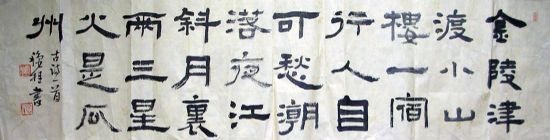 金陵津
渡小山
樓一宿
行人自
可愁潮
落夜江
斜月裏
兩三星
火是瓜
州
古詩一首
書